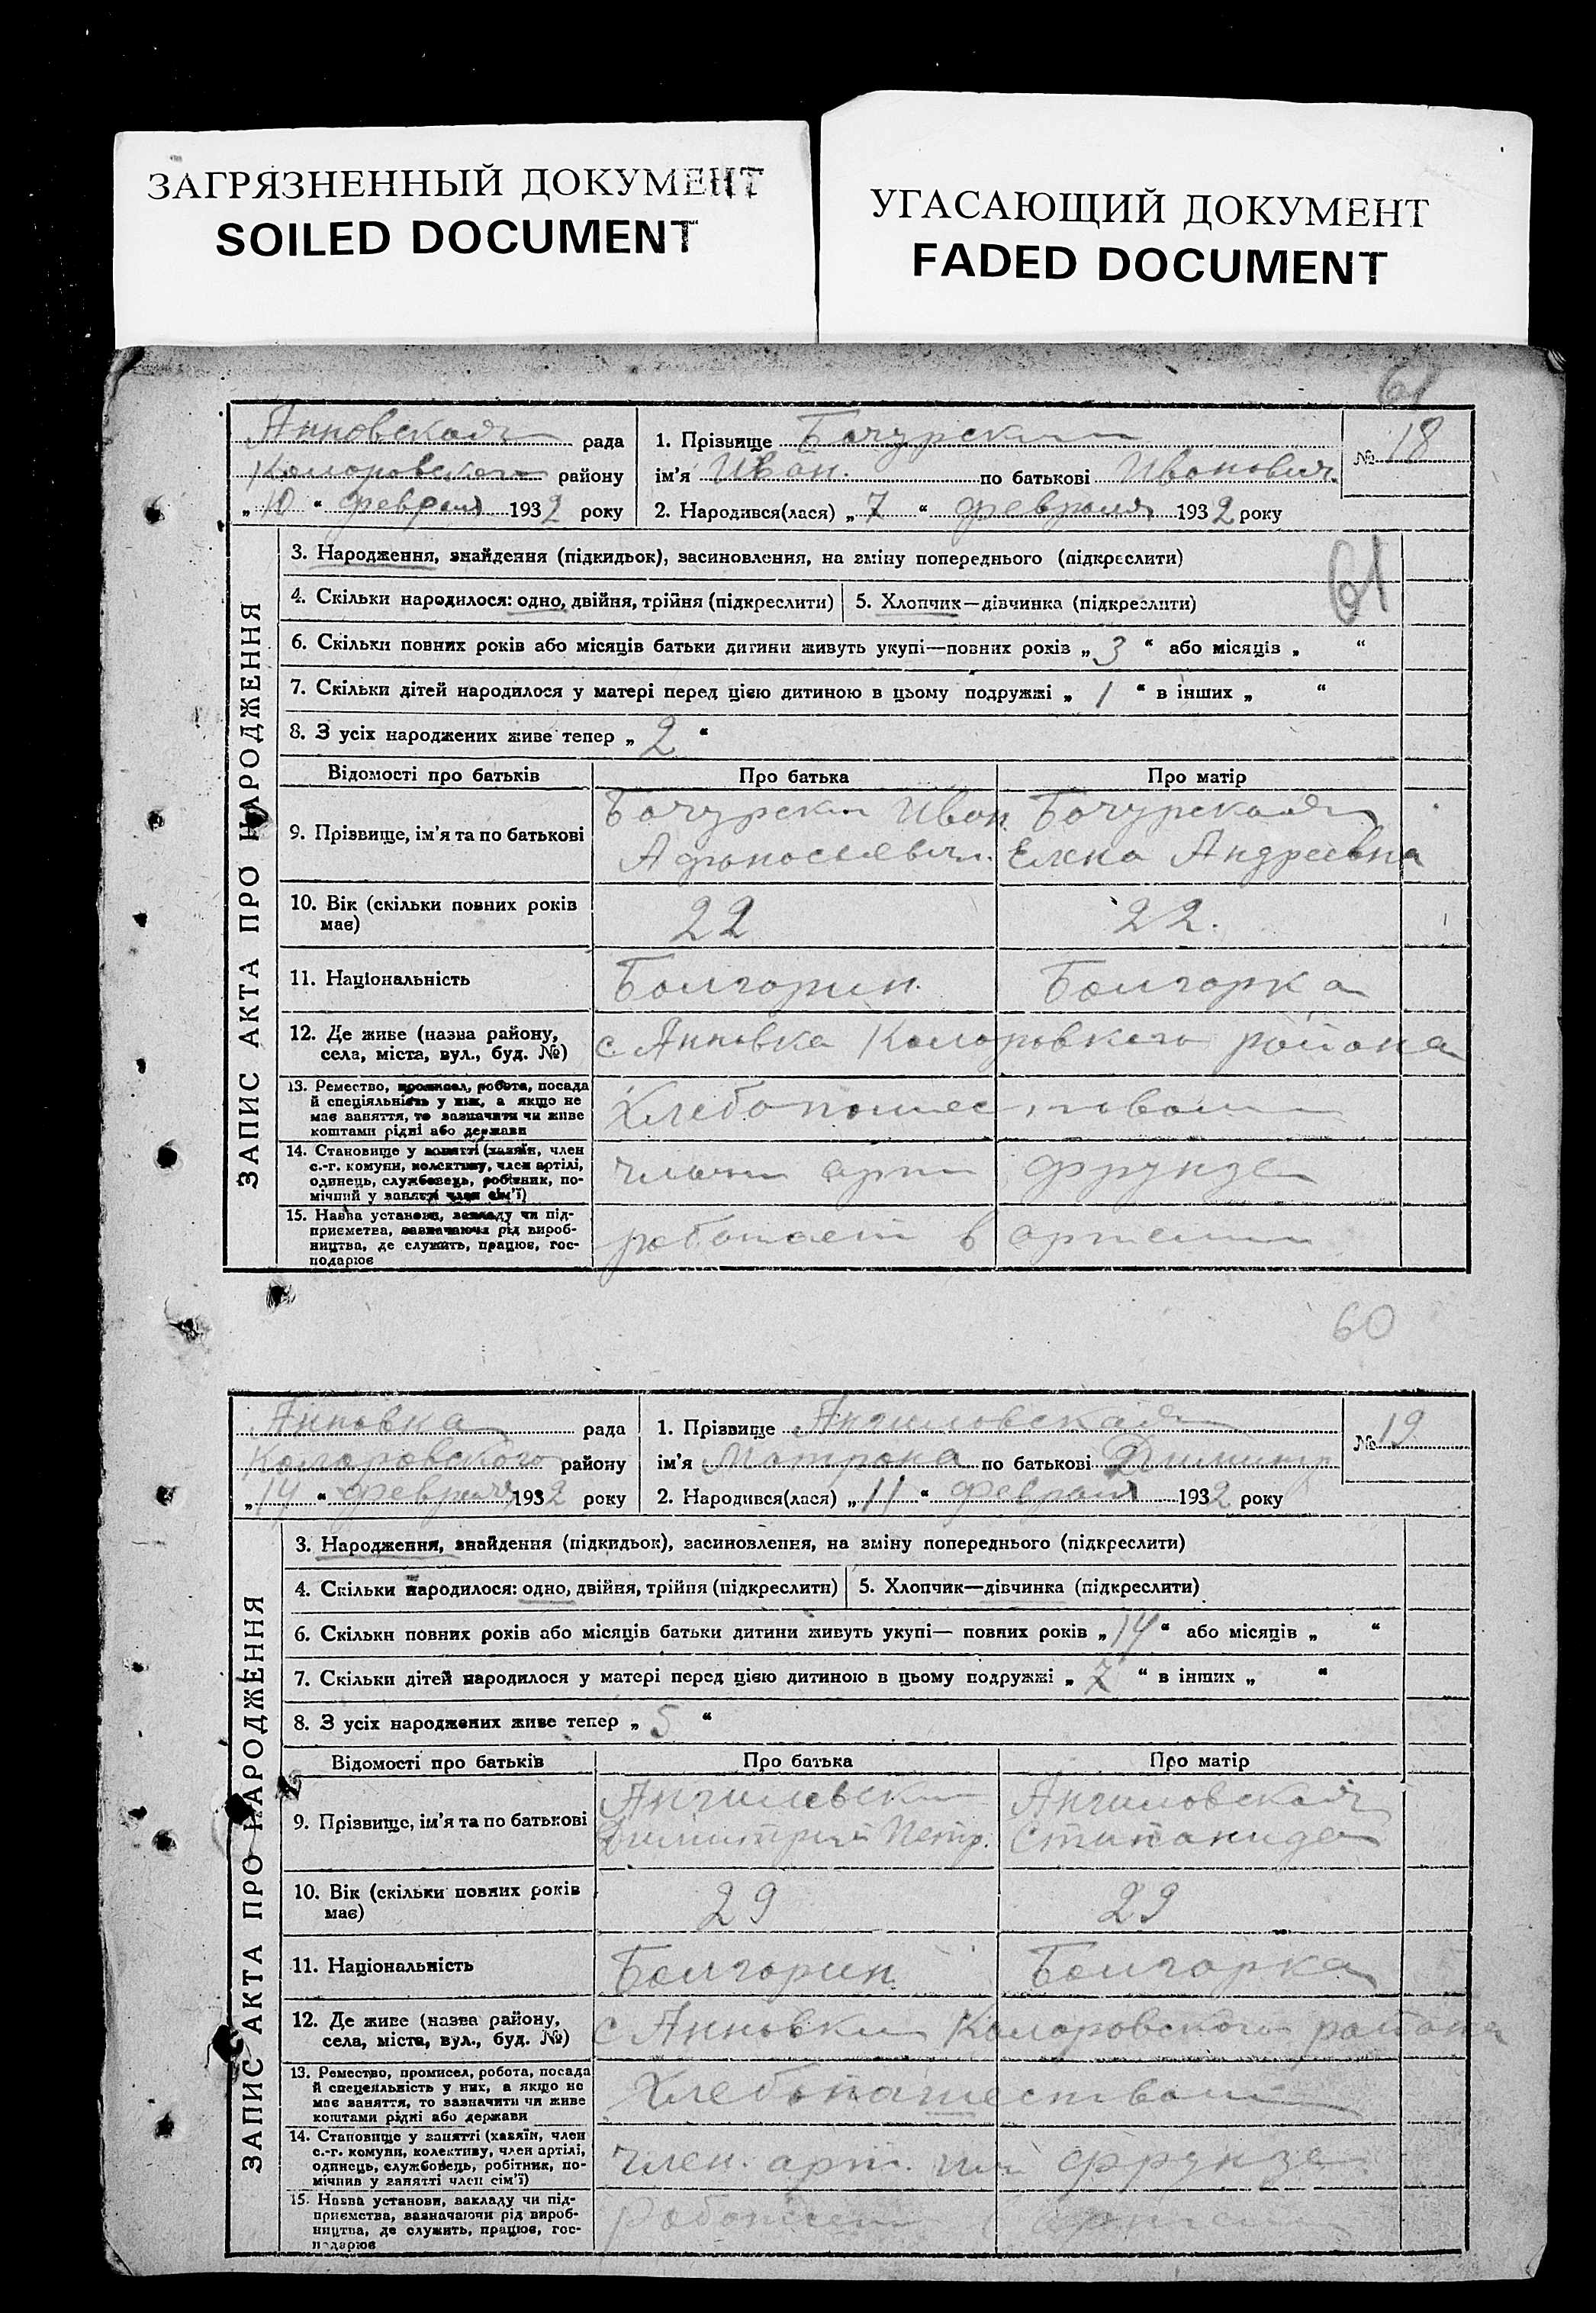 ЗАГРЯЗНЕННЫЙ ДОКУМЕНТ
SOILED DOCUMENT
УГАСАЮЩИЙ ДОКУМЕНТ
FADED DOCUMENT
61
Анновская рада
Коларовского району
„ 10 “ февраля 1932 року
1. Прізвище Бочурский
ім'я Иван. по батькові Иванович.
2. Народився(лася) „ 7 “ февраля 1932 року
№ 18
ЗАПИС АКТА ПРО НАРОДЖЕННЯ
3. Народження, знайдення (підкидьок), засиновлення, на зміну попереднього (підкреслити)
61
4. Скільки народилося: одно, двійня, трійня (підкреслити) 5. Хлопчик—дівчинка (підкреслити)
6. Скільки повних років або місяців батьки дитини живуть укупі—повних років „ 3 “ або місяців „ “
7. Скільки дітей народилося у матері перед цією дитиною в цьому подружжі „ 1 “ в інших „ “
8. З усіх народжених живе тепер „ 2 “
Відомості про батьків Про батька Про матір
9. Прізвище, ім'я та по батькові
Бочурский Иван Бочурская
Афоносьевич. Елена Андреевна
10. Вік (скільки повних років
має)
22 22.
11. Національність Болгорин. Болгорка
12. Де живе (назва району,
села, міста, вул., буд. №)
с Анновка Коларовкого района
13. Ремество, промисел, робота, посада
й спеціяльність у них, а якщо не
має заняття, то зазначити чи живе
коштами рідні або держави
Хлебопашеством
14. Становище у занятті (хазяїн, член
с.-г. комуни, колективу, член артілі,
одинець, службовець, робітник, по-
мічний у занятті член сім'ї)
член арт фрунзе
15. Назва установи, закладу чи під-
приємства, зазначаючи рід вироб-
ництва, де служить, працює, гос-
подарює
работает в артели
60
Анновка рада
Коларовского району
„ 14 “ февраля 1932 року
1. Прізвище Ангиловская
ім'я Матрона по батькові Димитр
2. Народився(лася) „ 11 “ февраля 1932 року
№ 19
ЗАПИС АКТА ПРО НАРОДЖЕННЯ
3. Народження, знайдення (підкидьок), засиновлення, на зміну попереднього (підкреслити)
4. Скільки народилося: одно, двійня, трійня (підкреслити) 5. Хлопчик—дівчинка (підкреслити)
6. Скільки повних років або місяців батьки дитини живуть укупі— повних років „ 14 “ або місяців „ “
7. Скільки дітей народилося у матері перед цією дитиною в цьому подружжі „ 7 “ в інших „ “
8. З усіх народжених живе тепер „ 5 “
Відомості про батьків Про батька Про матір
9. Прізвище, ім'я та по батькові
Ангиловский Ангиловская
Димитрий Петр. Стипанида
10. Вік (скільки повних років
має)
29 29
11. Національність Болгорин. Болгорка
12. Де живе (назва району,
села, міста, вул., буд. №)
с Анновки Коларовского района
13. Ремество, промисел, робота, посада
й спеціяльність у них, а якщо не
має заняття, то зазначити чи живе
коштами рідні або держави
Хлебопашеством
14. Становище у занятті (хазяїн, член
с.-г. комуни, колективу, член артілі,
одинець, службовець, робітник, по-
мічнив у занятті член сім'ї)
член. арт. им фрунзе
15. Назва установи, закладу чи під-
приємства, зазначаючи рід вироб-
ництва, де служить, працює, гос-
подарює
Работает